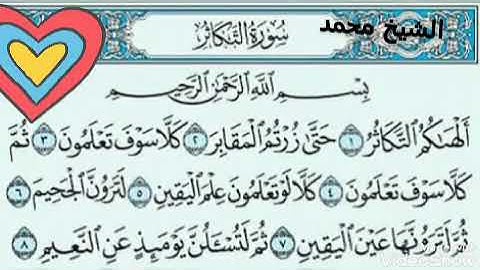 سُورَةُ التَّكَاثُرِ
الشيخ محمد
بِسْمِ اللَّهِ الرَّحْمَٰنِ الرَّحِيمِ
أَلْهَىٰكُمُ التَّكَاثُرُ ١ حَتَّىٰ زُرْتُمُ الْمَقَابِرَ ٢ كَلَّا سَوْفَ تَعْلَمُونَ ٣ ثُمَّ
كَلَّا سَوْفَ تَعْلَمُونَ ٤ كَلَّا لَوْ تَعْلَمُونَ عِلْمَ الْيَقِينِ ٥ لَتَرَوُنَّ الْجَحِيمَ ٦
ثُمَّ لَتَرَوُنَّهَا عَيْنَ الْيَقِينِ ٧ ثُمَّ لَتُسْـَٔلُنَّ يَوْمَئِذٍ عَنِ النَّعِيمِ ٨